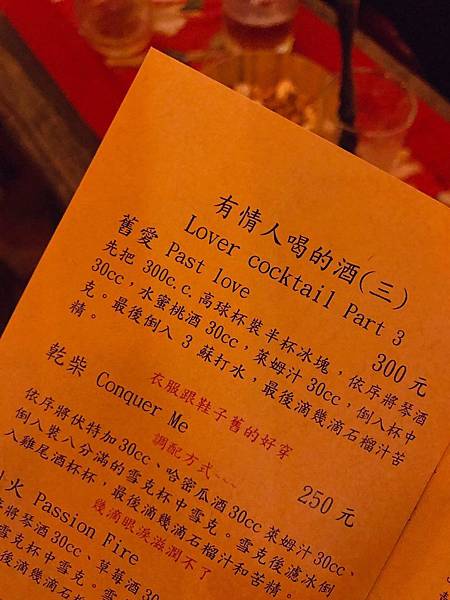 有情人喝的酒(三)
Lover cocktail Part 3
舊愛 Past love 300元
先把 300c.c.高球杯裝半杯冰塊，依序將琴酒
30cc，水蜜桃酒30cc，萊姆汁30cc，倒入杯中
克。最後倒入 3 蘇打水，最後滴幾滴石榴汁苦
精。
衣服跟鞋子舊的好穿
乾柴 Conquer Me 250元
調配方式~~~
依序將伏特加30cc、哈密瓜酒30cc萊姆汁30cc、
倒入裝八分滿的雪克杯中雪克。雪克後濾冰倒
入雞尾酒杯杯，最後滴幾滴石榴汁和苦精。
幾滴眼淚滋潤不了
火 Passion Fire
將琴酒30cc、草莓酒30
雪克杯中雪克。雪
後滴幾滴石